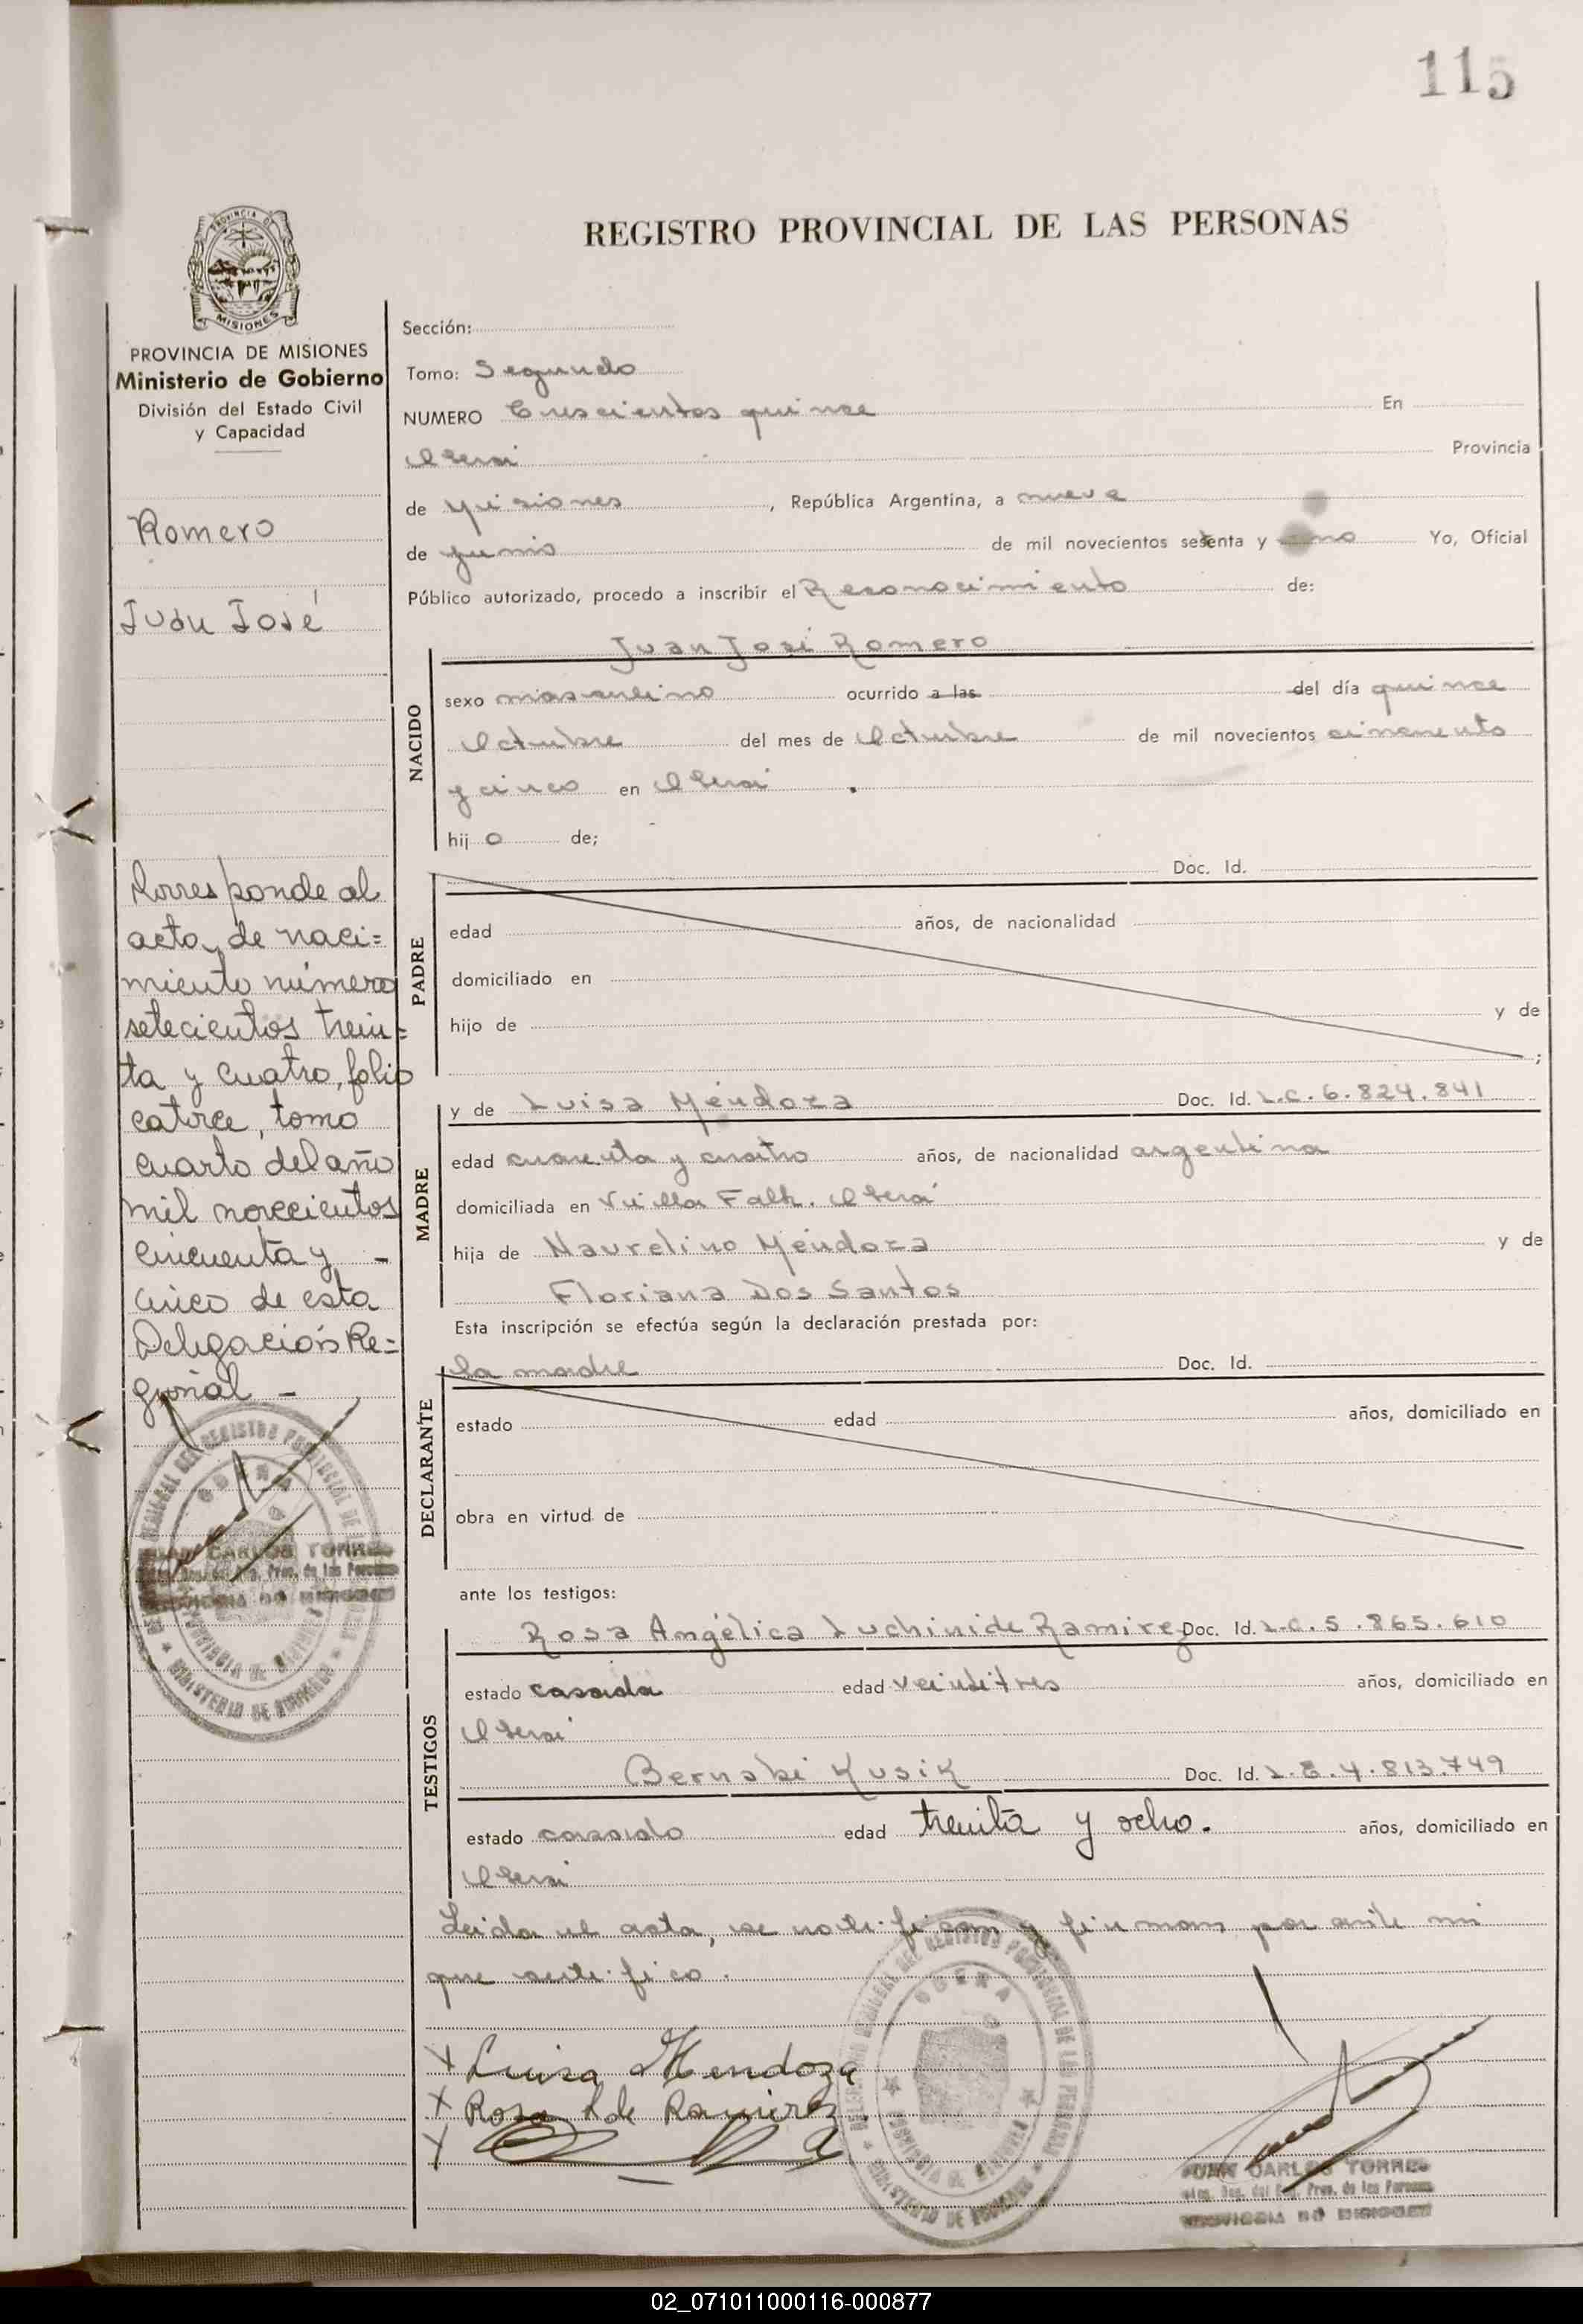 115
REGISTRO PROVINCIAL DE LAS PERSONAS
PROVINCIA DE MISIONES
PROVINCIA DE MISIONES
Ministerio de Gobierno
División del Estado Civil
y Capacidad
Romero
Juan José
Corresponde al
acta de naci=
miento número
setecientos trein=
ta y cuatro, folio
catorce, tomo
cuarto del año
mil novecientos
cincuenta y -
cinco de esta
Delegación Re=
gional -
JUAN CARLOS TORRES
Sección:
Tomo: Segundo
NUMERO Trescientos quince En
Oberá Provincia
de Misiones, República Argentina, a nueve
de junio de mil novecientos sesenta y uno Yo, Oficial
Público autorizado, procedo a inscribir el Reconocimiento de:
NACIDO
Juan José Romero
sexo masculino ocurrido a las del día quince
Octubre del mes de Octubre de mil novecientos cincuenta
y cinco en Oberá
hij o de;
PADRE
Doc. Id.
edad años, de nacionalidad
domiciliado en
hijo de y de
;
MADRE
y de Luisa Méndoza Doc. Id. L.C. 6.824.841
edad cuarenta y cuatro años, de nacionalidad argentina
domiciliada en Villa Falk. Oberá
hija de Naurelino Méndoza y de
Floriana Dos Santos
Esta inscripción se efectúa según la declaración prestada por:
DECLARANTE
la madre Doc. Id.
estado edad años, domiciliado en
obra en virtud de
ante los testigos:
TESTIGOS
Rosa Angélica Luchini de Ramirez Doc. Id. L.C. 5.865.610
estado casada edad veintitres años, domiciliado en
Oberá
Bernabé Kusik Doc. Id. L.E. 4.813.749
estado casado edad treinta y ocho. años, domiciliado en
Oberá
Leida el acta, se notifican y firman por ante mi
que certifico.
x Luisa Mendoza
x Rosa L de Ramirez
x
OBERA
PROVINCIA DE MISIONES
MINISTERIO DE GOBIERNO
JUAN CARLOS TORRES
02_071011000116-000877